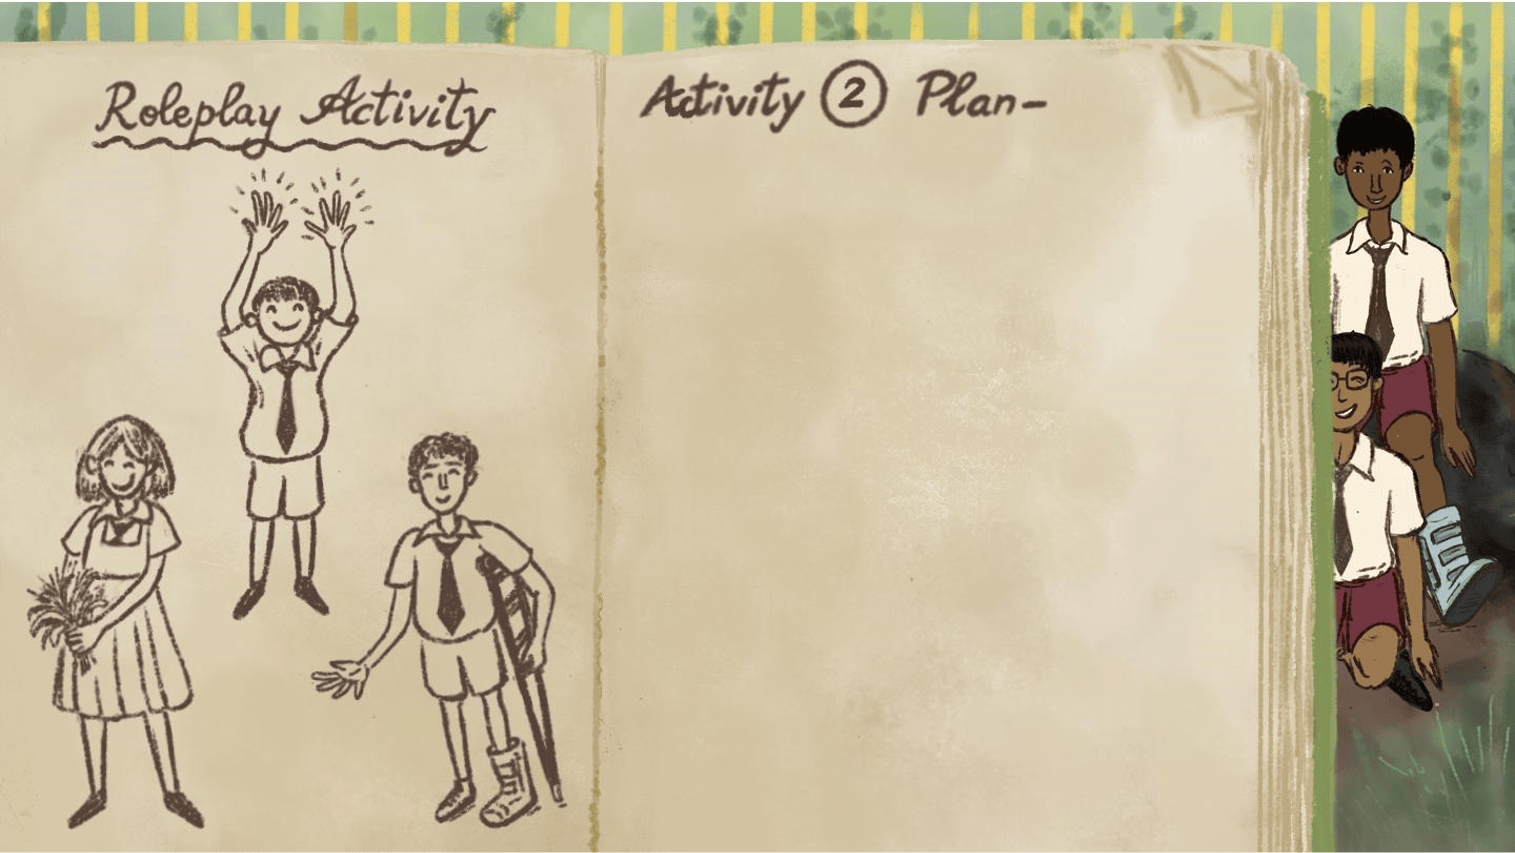 Roleplay Activity
Activity 2 Plan-